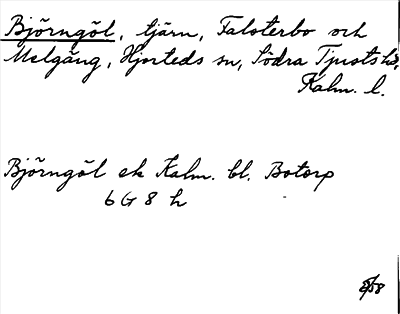 Björngöl, tjärn, Falsterbo och
Mulgång, Hjorteds sn, Södra Tjusts hd,
Kalm. l.
Björngöl ek Kalm. bl. Botorp
6 G 8 h